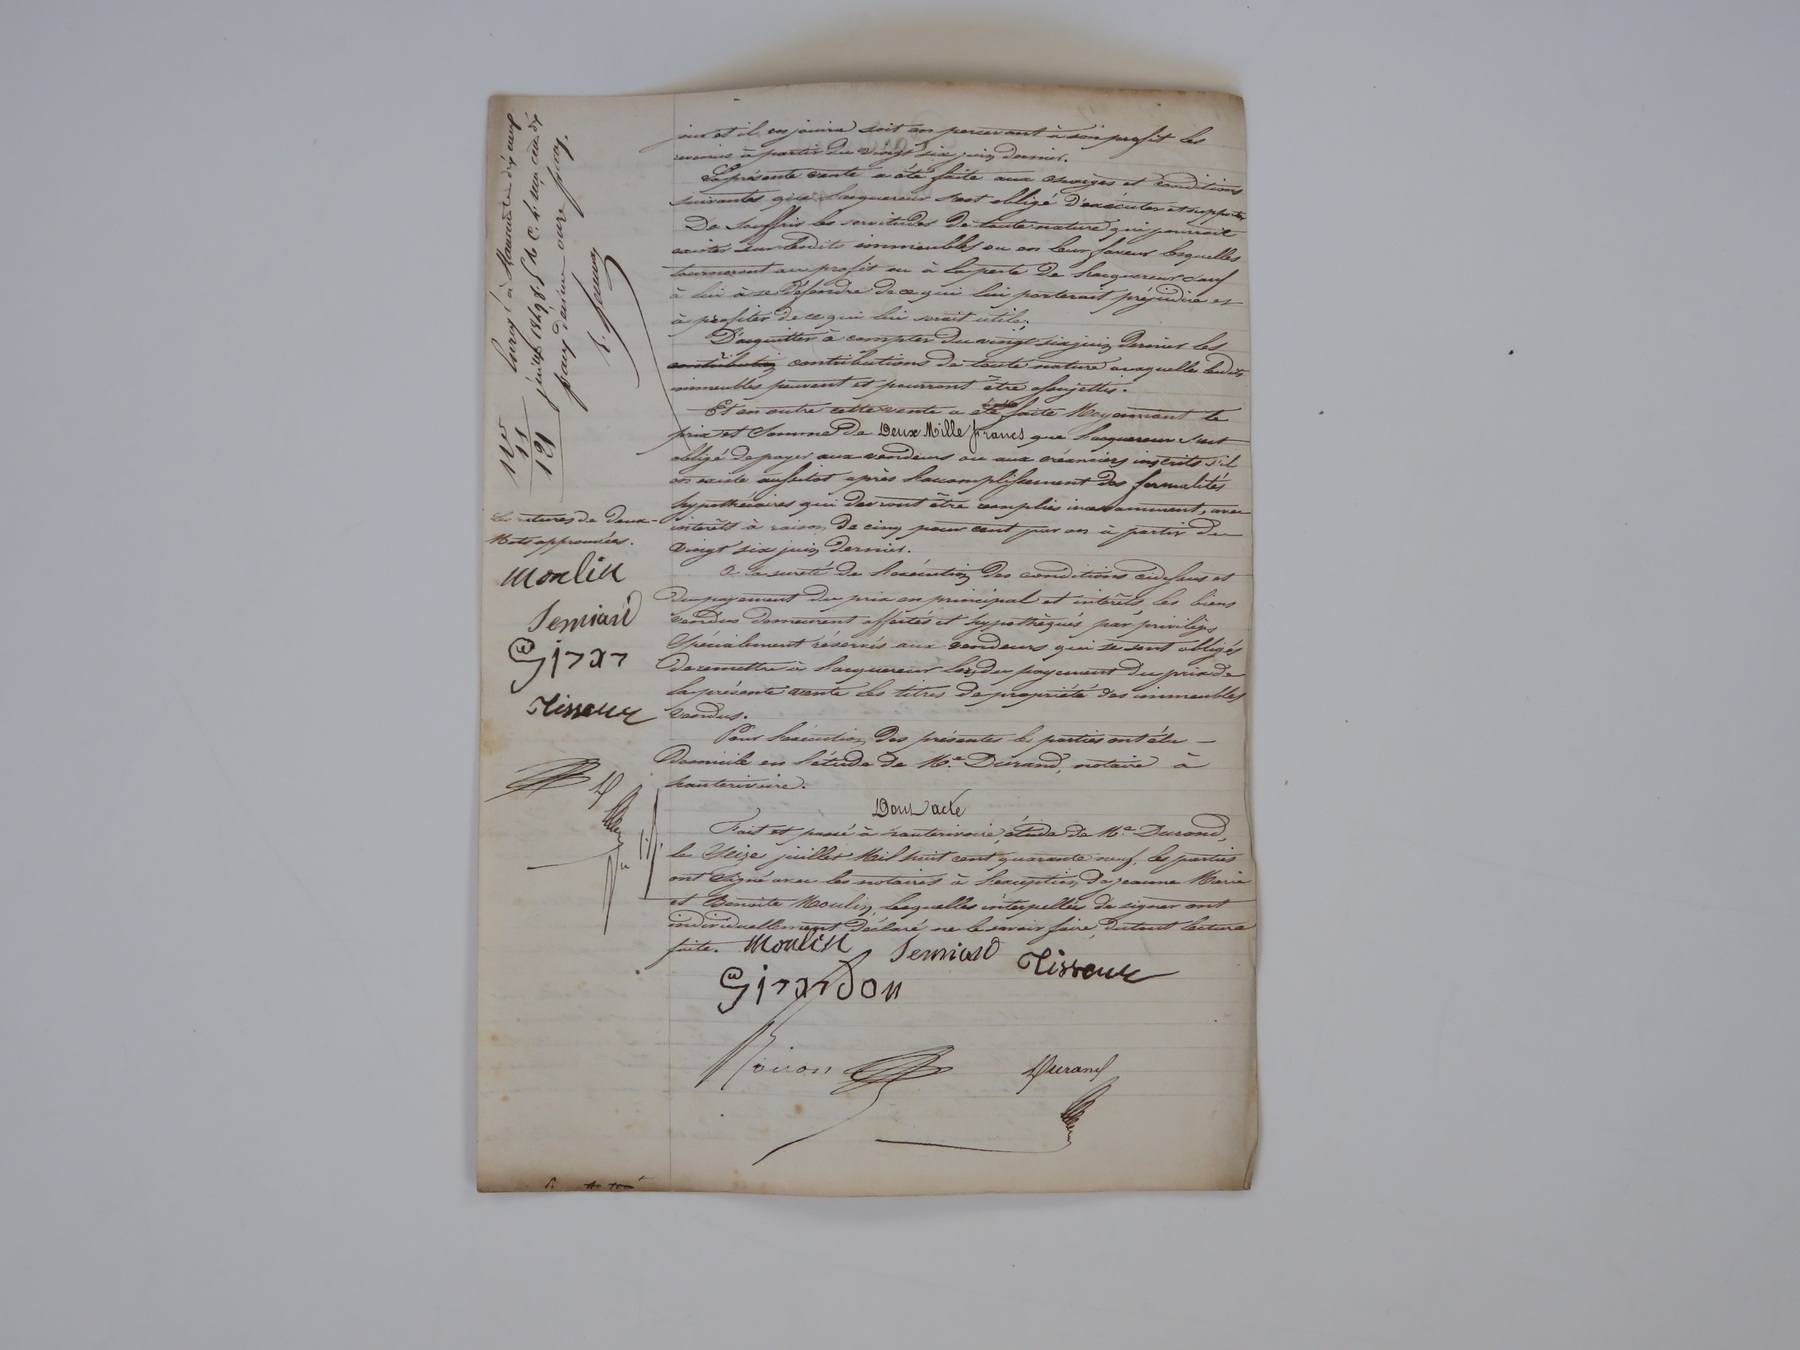 jour et il en jouira soit en percevant à son profit les
revenus à partir du vingt six juin dernier.
La présente vente a été faite aux charges et conditions
suivantes que l'acquereur s'est obligé d'exécuter et supporter
De souffrir les servitudes de toute nature qui pourraient
exister sur lesdits immeubles ou en leur faveur lesquelles
tourneront au profit ou à la perte de l'acquereur sauf
à lui à se défendre de ce qui lui porterait préjudice et
à profiter de ce qui lui serait utile.
D'acquitter à compter du vingt six juin dernier les
contribution contributions de toute nature auxquelles lesdits
immeubles peuvent et pourront être assujettis.
Et en outre cette vente a été faite Moyennant le
prix et Somme de Deux Mille francs que l'acquereur s'est
obligé de payer aux vendeurs ou aux créanciers inscrits s'il
en existe aussitot après l'accomplissement des formalités
hypothécaires qui devront être remplies incessamment, avec
intérêts à raison de cinq pour cent par an à partir du
vingt six juin dernier.
A la sureté de l'exécution des conditions cidessus et
du payement du prix en principal et intérêts les biens
vendus demeurent affectés et hypothèqués par privilége
spécialement réservés aux vendeurs qui se sont obligés
de remettre à l'acquereur lors du payement du prix de
la présente vente les titres de propriété des immeubles
vendus.
Pour l'exécution des présentes les parties ont élu
Domicile en l'étude de Me. Durand, notaire à
hauterivoire.
Dont acte
Fait et passé à hauterivoire, étude de Me. Durand,
le Seize juillet Mil huit cent quarante neuf, les parties
ont signé avec les notaires à l'exception de jeanne Marie
et Benoite Moulin, lesquelles interpellées de signer ont
individuellement déclaré ne le savoir faire, du tout lecture
faite. Moulin
Tisseur
Girardon
Durand
110
11
121
Les ratures de deux
Mots approuvées.
Moulin
Girar
Tisseur